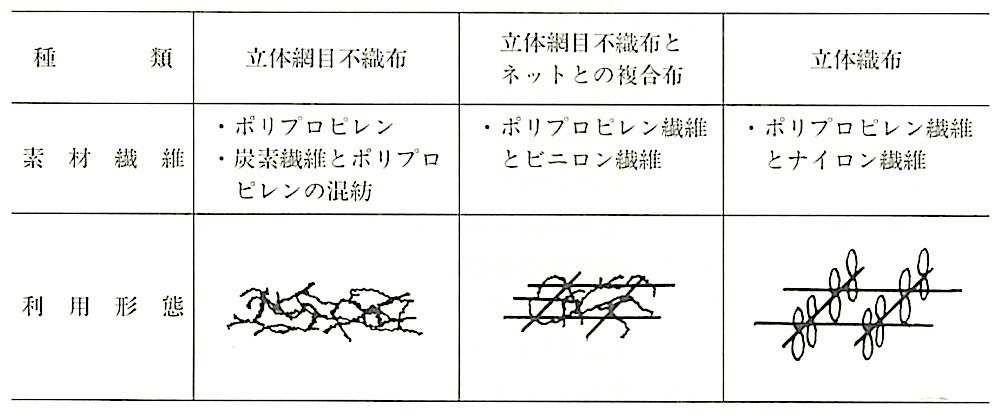 種類
立体網目不織布
立体網目不織布と
ネットとの複合布
立体織布
素材繊維
・ポリプロピレン
・炭素繊維とポリプロ
ピレンの混紡
・ポリプロピレン繊維
とビニロン繊維
・ポリプロピレン繊維
とナイロン繊維
利用形態